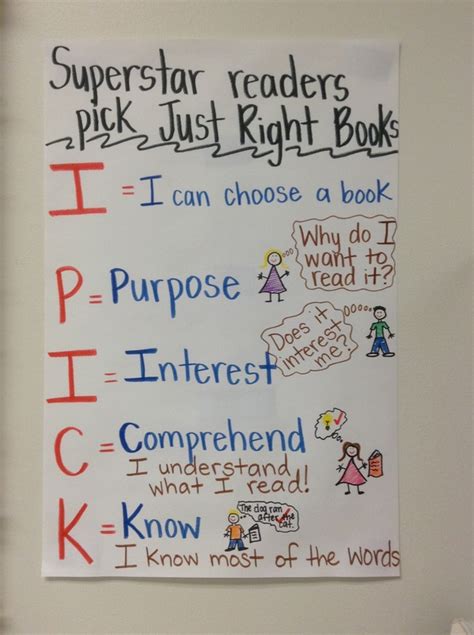 Superstar readers
pick Just Right Books
I = I can choose a book
Why do I
want to
read it?
P = Purpose
Does it
interest
me?
I = Interest
C = Comprehend
I understand
what I read!
K = Know
The dog ran
after the
cat.
I know most of the words